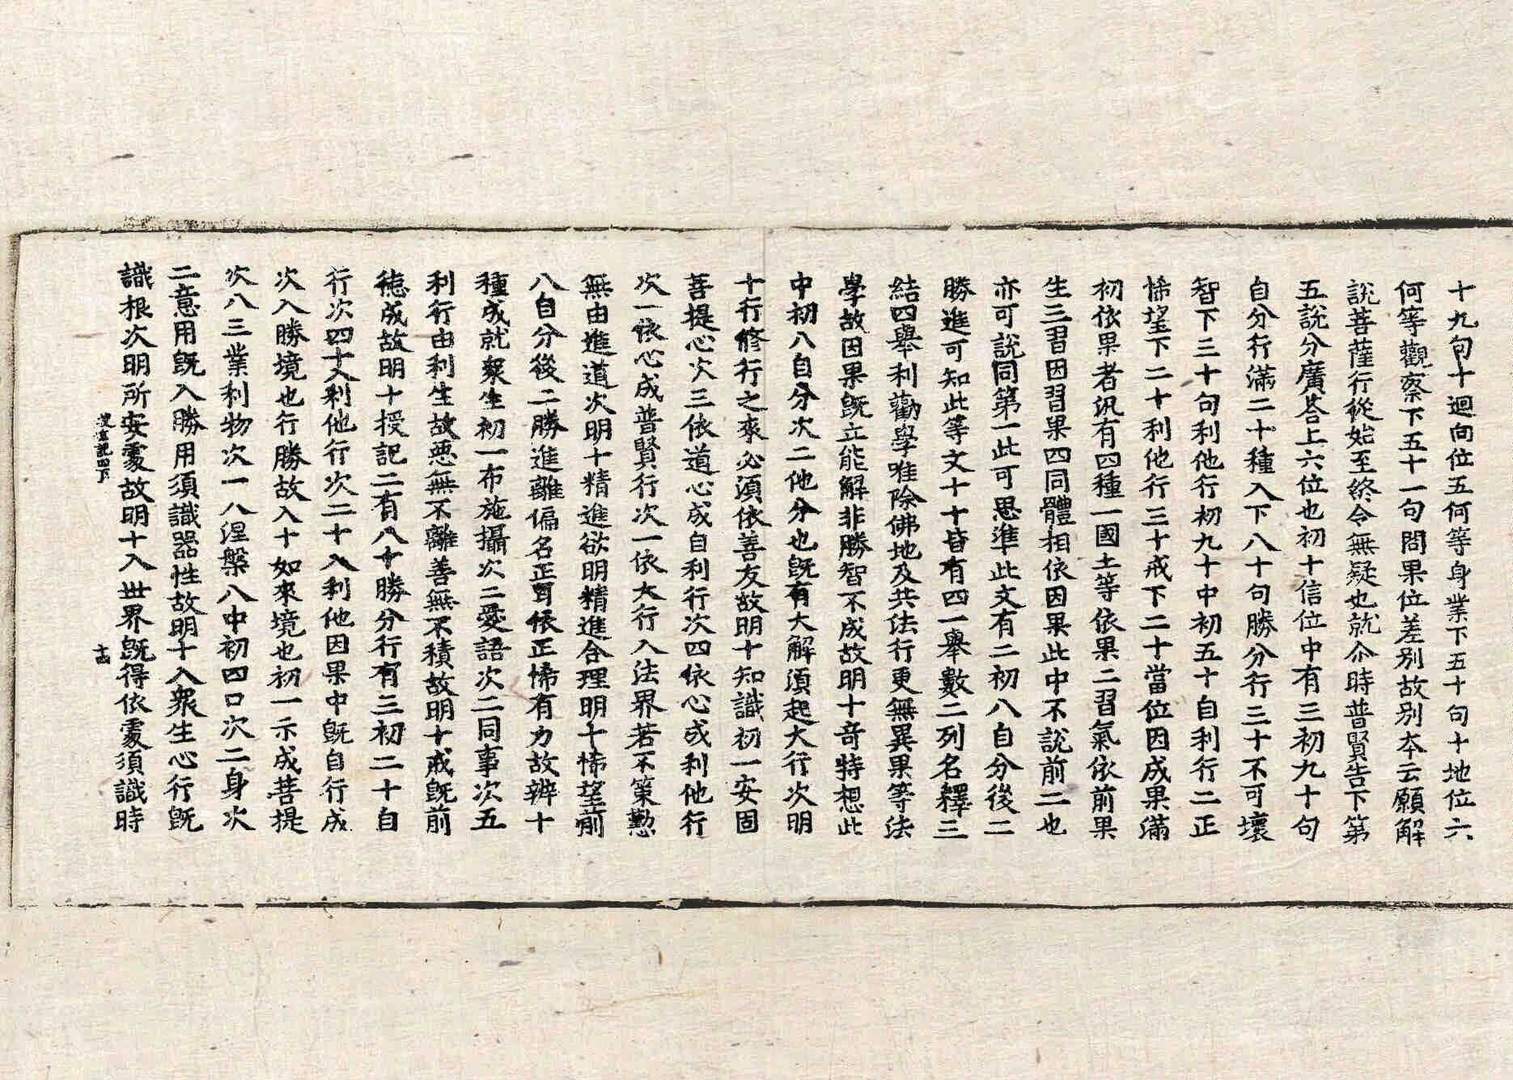 十九句十迴向位五何等身業下五十句十地位六
何等觀察下五十一句問果位差別故別本云願解
說菩薩行從始至終令無疑也就尒時普賢告下第
五說分廣荅上六位也初十信位中有三初九十句
自分行滿二十種入下八十句勝分行三十不可壞
智下三十句利他行初九十中初五十自利行二正
悕望下二十利他行三十戒下二十當位因成果滿
初依果者汎有四種一國土等依果二習氣依前果
生三習因習果四同體相依因果此中不說前二也
亦可說同第一此可思準此文有二初八自分後二
勝進可知此等文十十皆有四一舉數二列名釋三
結四舉利勸學唯除佛地及共法行更無異果等法
學故因果旣立能解非勝智不成故明十奇特想此
中初八自分次二他分也旣有大解須起大行次明
十行修行之來必須依善友故明十知識初一安固
菩提心次三依道心成自利行次四依心成利他行
次一依心成普賢行次一依大行入法界若不策懃
無由進道次明十精進欲明精進合理明十悕望前
八自分後二勝進離偏名正習依正悕有力故辨十
種成就衆生初一布施攝次二愛語次二同事次五
利行由利生故惡無不離善無不積故明十戒旣前
德成故明十授記二有八十勝分行有三初二十自
行次四十入利他行次二十入利他因果中旣自行成
次入勝境也行勝故入十如來境也初一示成菩提
次八三業利物次一八涅槃八中初四口次二身次
二意用旣入勝用須識器性故明十入衆生心行旣
識根次明所安處故明十入世界旣得依處須識時
搜玄記四下
十四